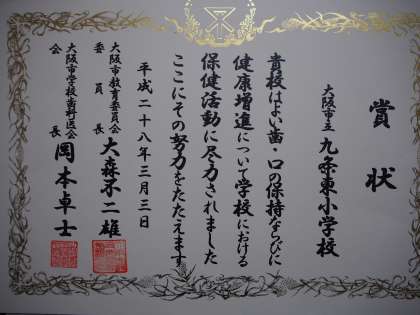 賞状
大阪市立 九条東小学校
貴校はよい歯・口の保持ならびに
健康増進について学校における
保健活動に尽力されました
ここにその努力をたたえます
平成二十八年三月三日
大阪市教育委員会
委員長 大森不二雄
大阪市学校歯科医会
会長 岡本卓士